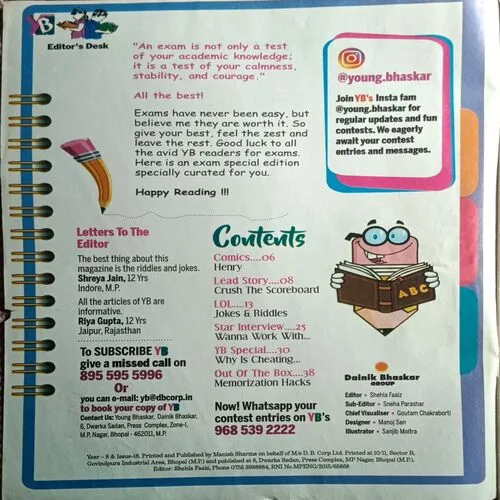 YB
Editor's Desk
"An exam is not only a test
of your academic knowledge;
it is a test of your calmness,
stability, and courage."
All the best!
Exams have never been easy, but
believe me they are worth it. So
give your best, feel the zest and
leave the rest. Good luck to all
the avid YB readers for exams.
Here is an exam special edition
specially curated for you.
Happy Reading !!!
@young.bhaskar
Join YB's Insta fam
@young.bhaskar for
regular updates and fun
contests. We eagerly
await your contest
entries and messages.
Letters To The
Editor
The best thing about this
magazine is the riddles and jokes.
Shreya Jain, 12 Yrs
Indore, M.P.
All the articles of YB are
informative.
Riya Gupta, 12 Yrs
Jaipur, Rajasthan
To SUBSCRIBE YB
give a missed call on
895 595 5996
Or
you can e-mail: yb@dbcorp.in
to book your copy of YB
Contact Us: Young Bhaskar, Dainik Bhaskar,
6, Dwarka Sadan, Press Complex, Zone-I,
M.P. Nagar, Bhopal - 462011, M.P.
Contents
Comics....06
Henry
Lead Story....08
Crush The Scoreboard
LOL....13
Jokes & Riddles
Star Interview....25
Wanna Work With...
YB Special....30
Why Is Cheating...
Out Of The Box....38
Memorization Hacks
Now! Whatsapp your
contest entries on YB's
968 539 2222
ABC
Dainik Bhaskar
GROUP
Editor - Shehla Faaiz
Sub-Editor - Sneha Parashar
Chief Visualiser - Goutam Chakraborti
Designer - Manoj Sen
Illustrator - Sanjib Moitra
Year - 8 & Issue-18. Printed and Published by Manish Sharma on behalf of M/s D. B. Corp Ltd. Printed at 10/11, Sector B,
Govindpura Industrial Area, Bhopal (M.P.) and published at 6, Dwarka Sadan, Press Complex, MP Nagar, Bhopal (M.P.).
Editor: Shehla Faaiz, Phone 0755 3988884, RNI No.MPENG/2015/65868